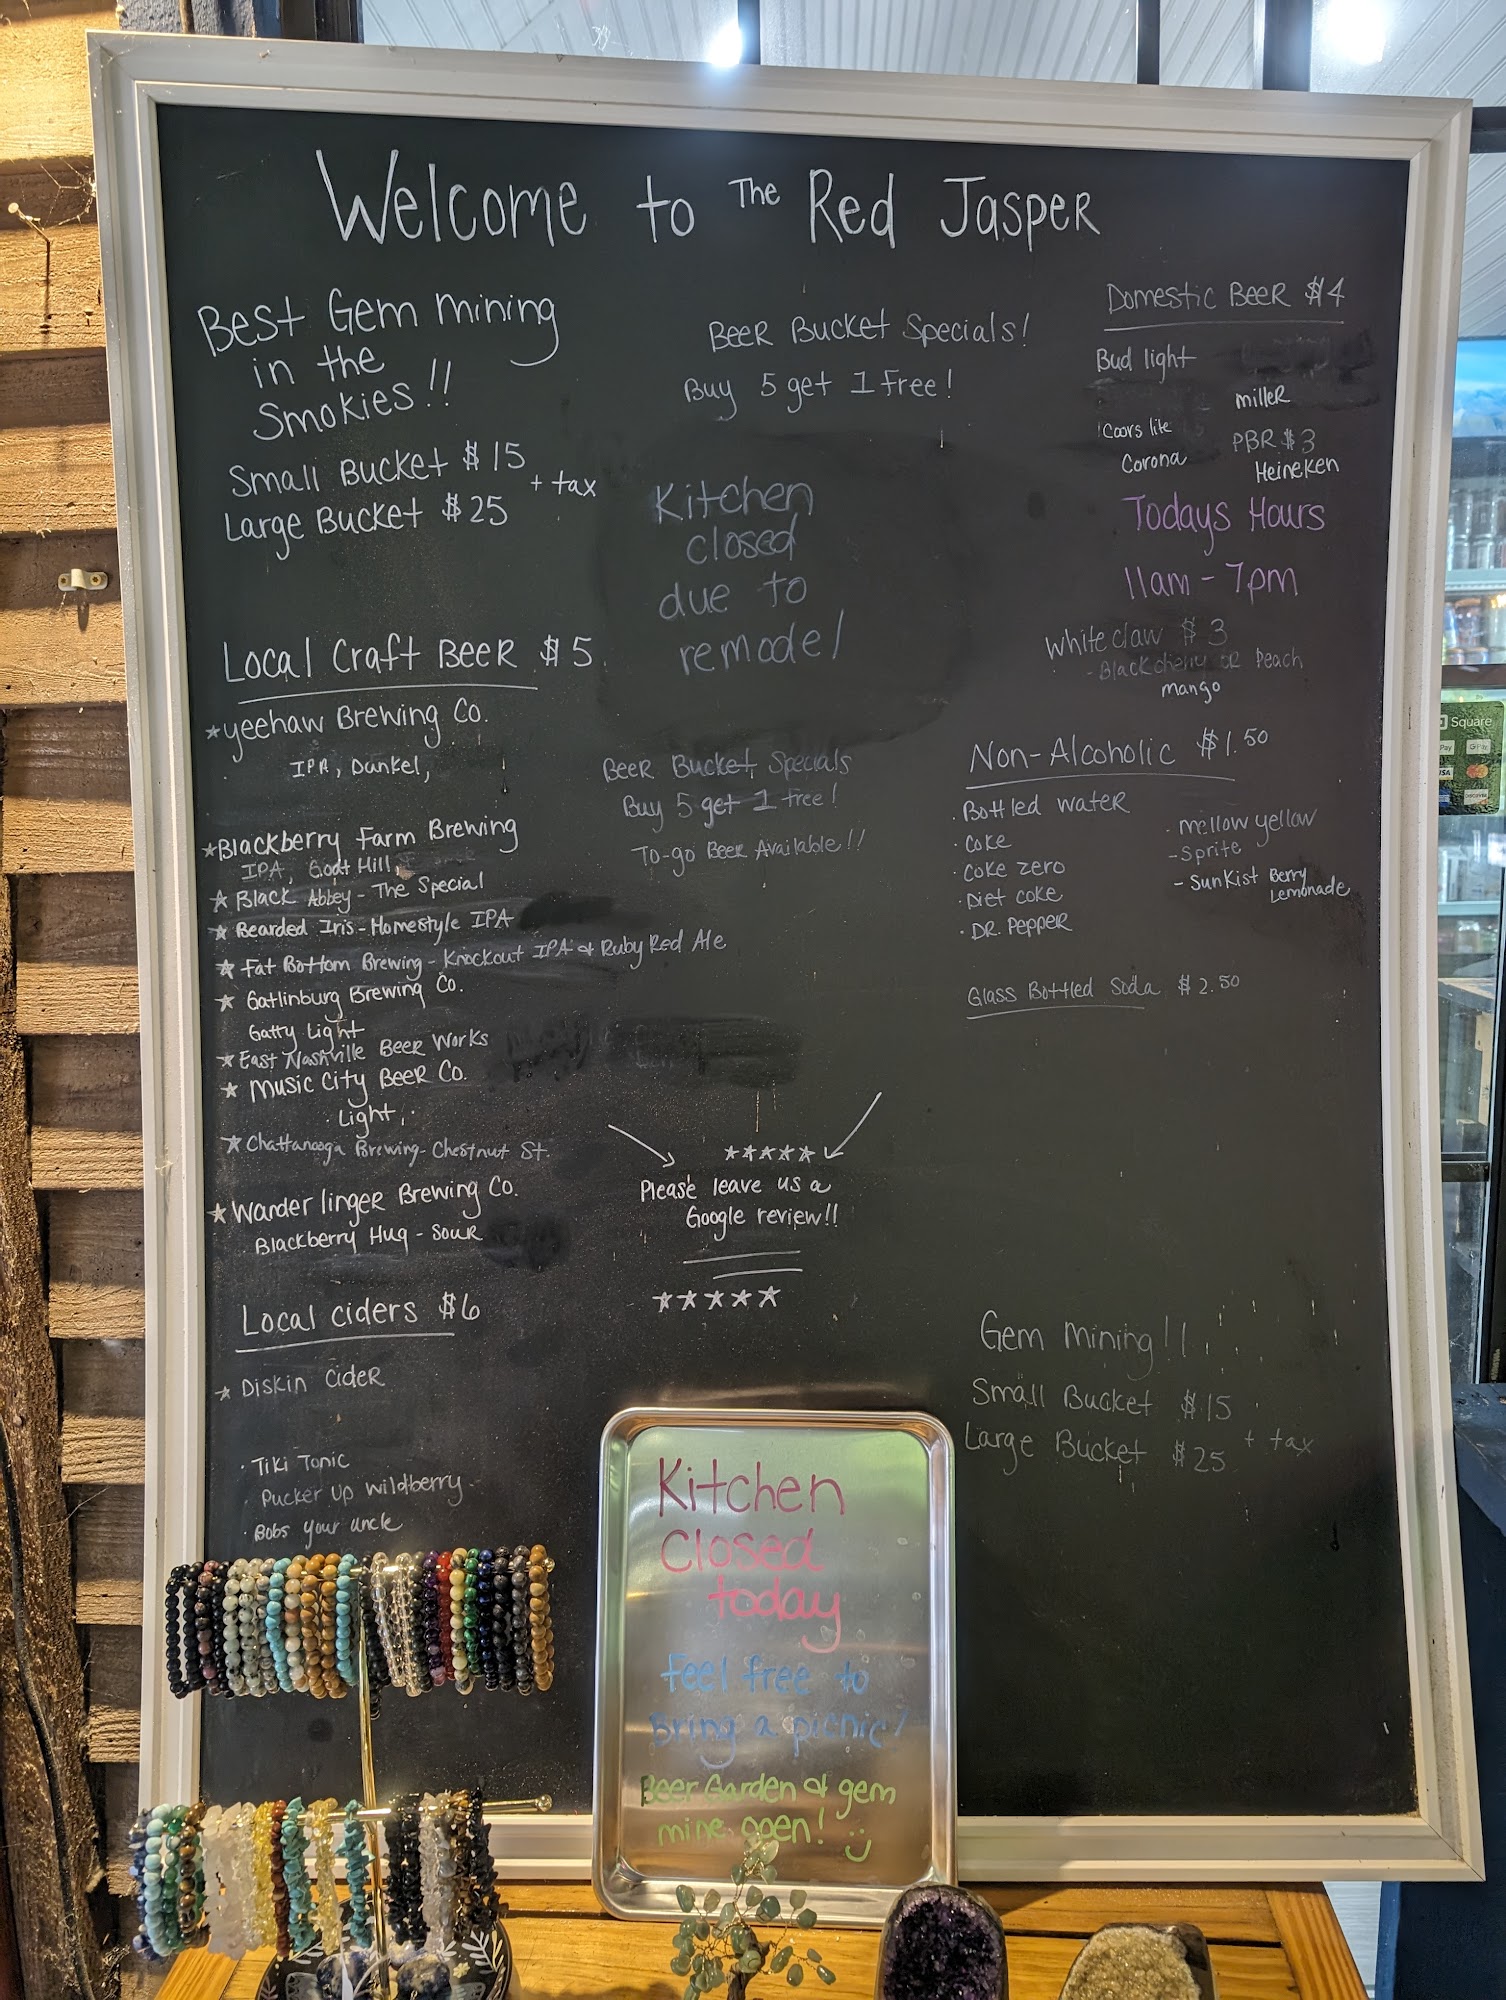 Welcome to The Red Jasper
Best Gem mining
in the
Smokies!!
Small Bucket $15
+ tax
Large Bucket $25
Local Craft Beer $5
★yeehaw Brewing Co.
IPA, Dunkel,
★Blackberry Farm Brewing
IPA, Goat Hill,
★ Black Abbey - The Special
★ Bearded Iris - Homestyle IPA
★ Fat Bottom Brewing - Knockout IPA & Ruby Red Ale
★ Gatlinburg Brewing Co.
Gatty Light
★ East Nashville Beer Works
★ Music City Beer Co.
· Light,
★ Chattanooga Brewing - Chestnut St.
★ Wanderlinger Brewing Co.
Blackberry Hug - Sour
Local ciders $6
★ Diskin Cider
· Tiki Tonic
· Pucker Up Wildberry
· Bobs your uncle
Beer Bucket Specials!
Buy 5 get 1 Free!
Kitchen
closed
due to
remodel
Beer Bucket Specials
Buy 5 get 1 free!
To-go Beer Available!!
★★★★★
Please leave us a
Google review!!
★★★★★
Domestic Beer $4
Bud light
miller
Coors lite
PBR $3
Corona
Heineken
Todays Hours
11am - 7pm
White claw $3
- Black cherry or Peach
mango
Non-Alcoholic $1.50
· Bottled water
· Coke
· Coke zero
· Diet coke
· Dr. Pepper
- mellow yellow
- Sprite
- Sunkist Berry
Lemonade
Glass Bottled Soda $2.50
Gem mining!!
Small Bucket $15
Large Bucket $25 + tax
Kitchen
Closed
today
Feel free to
Bring a picnic!
Beer Garden & gem
mine open! :)
Square
Pay
G Pay
VISA
DISCOVER